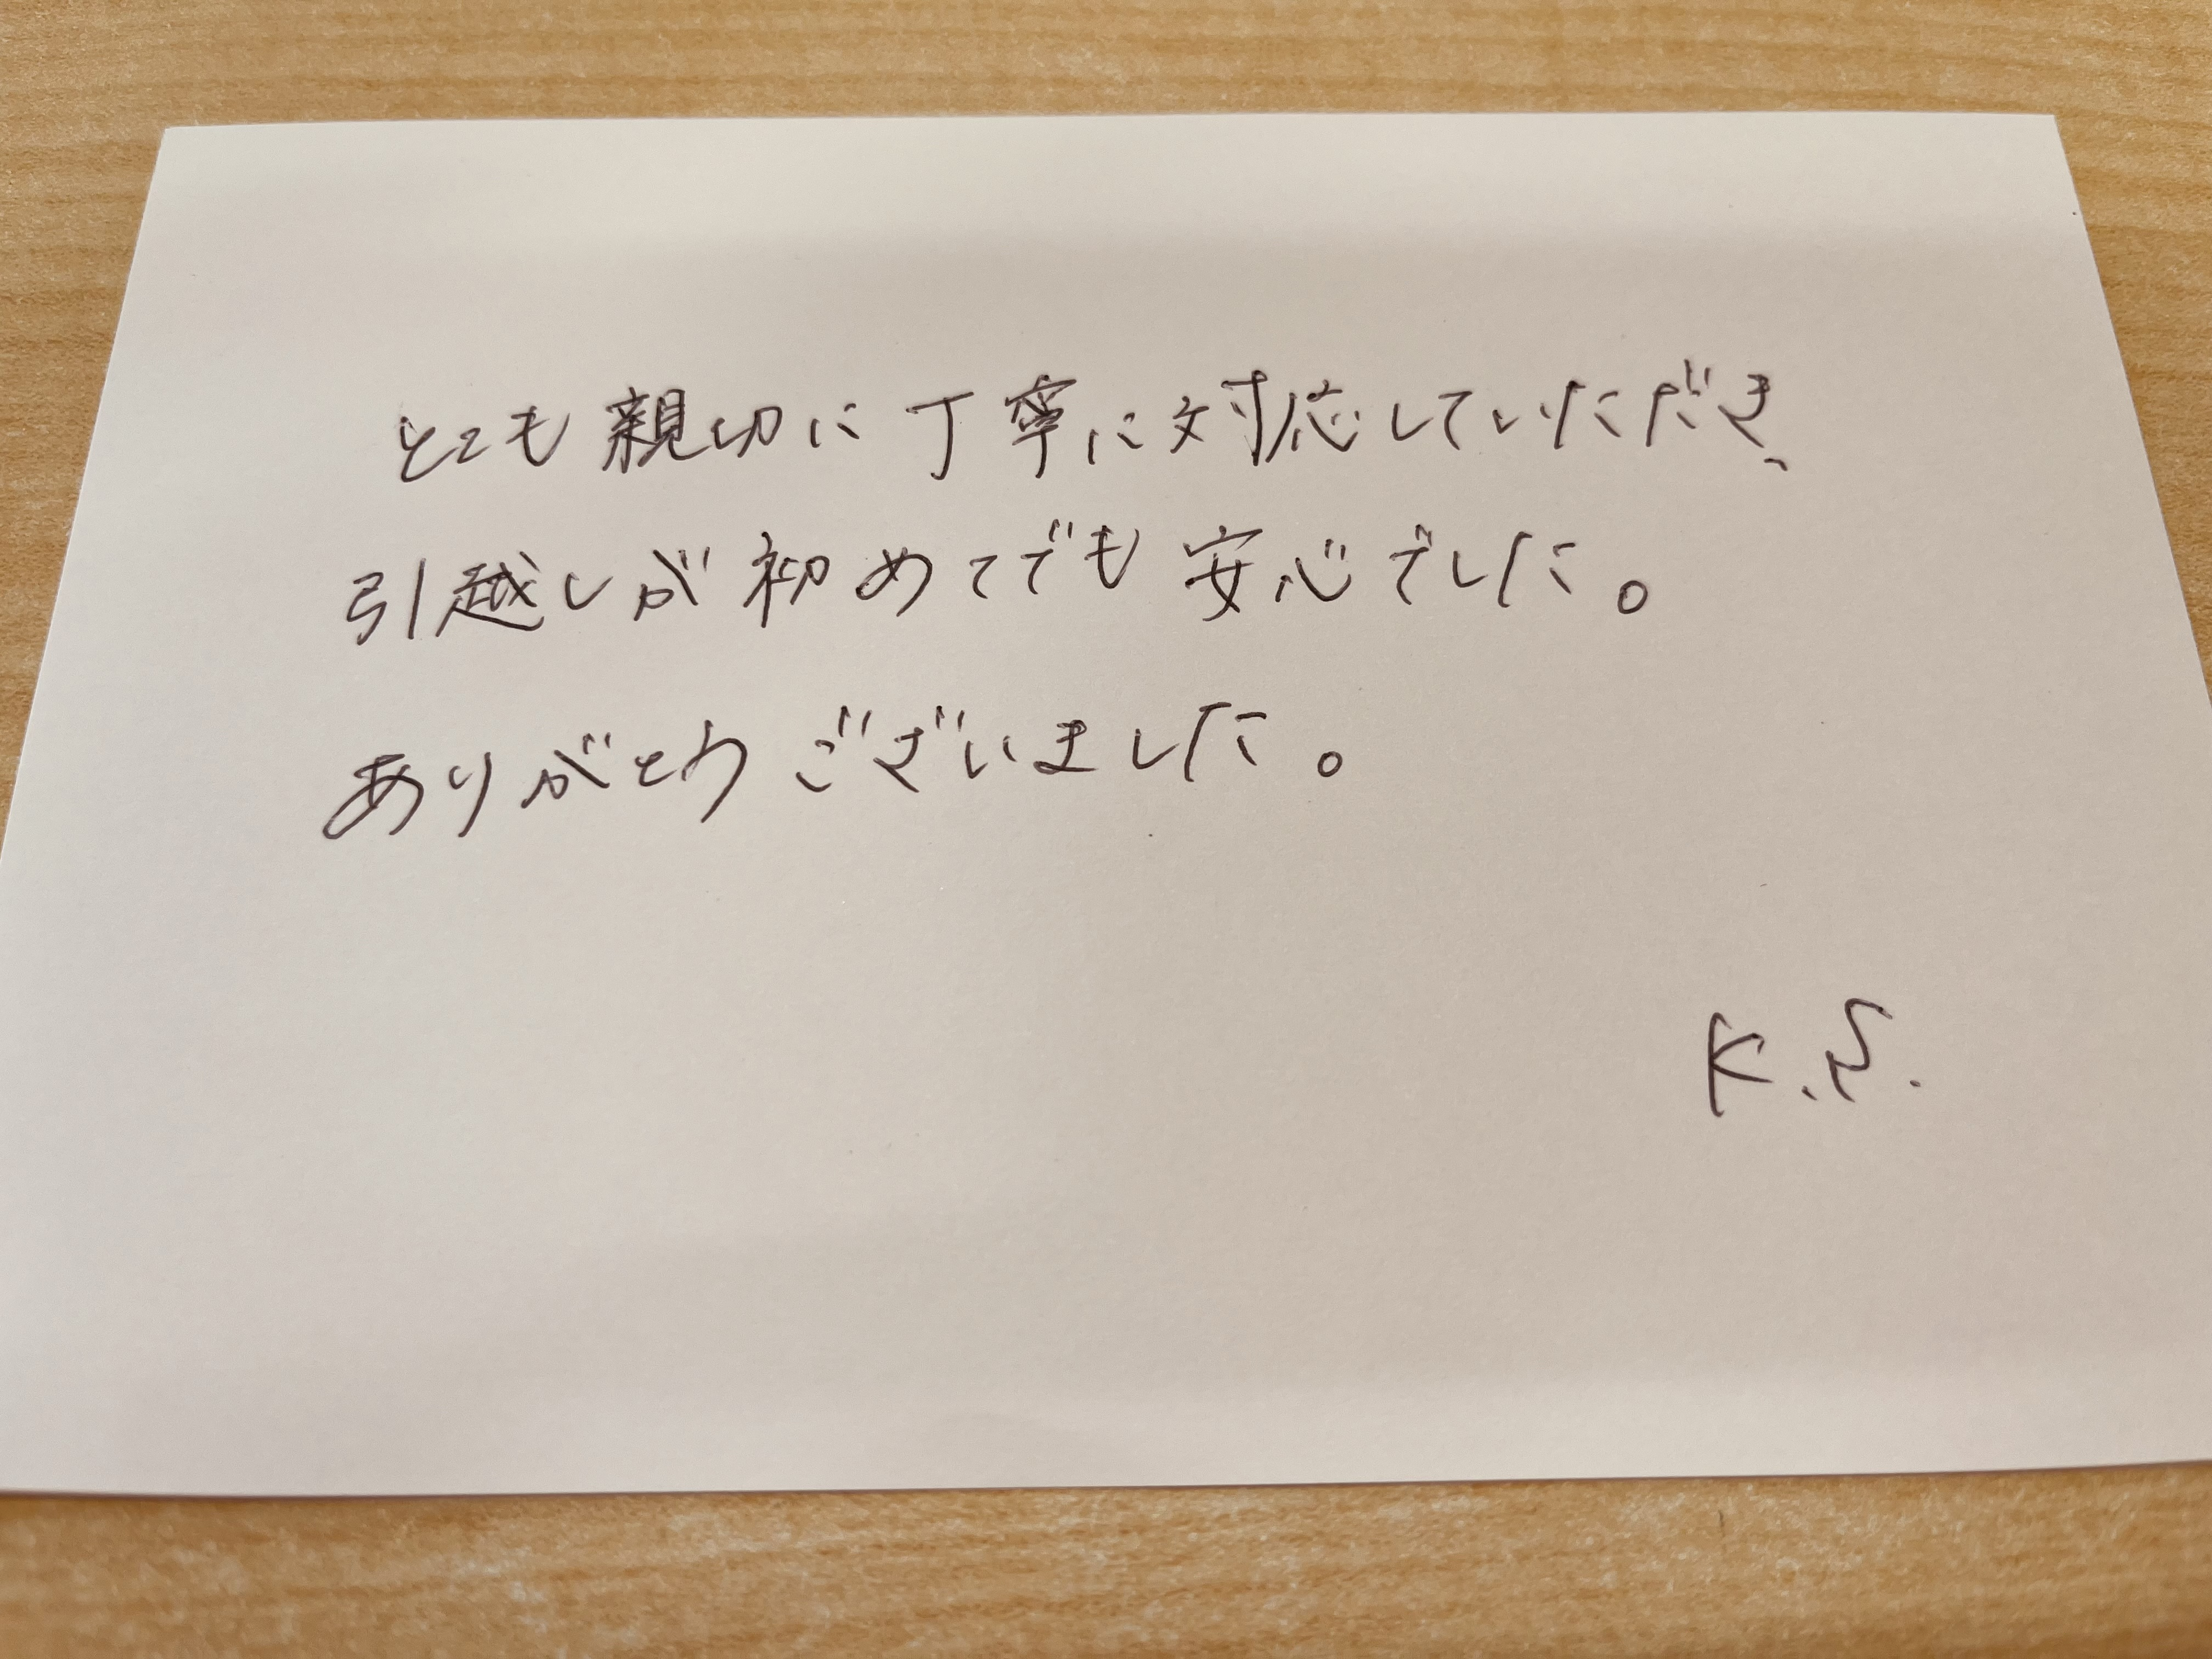 とても親切に丁寧に対応していただき、
引越しが初めてでも安心でした。
ありがとうございました。
K.S.